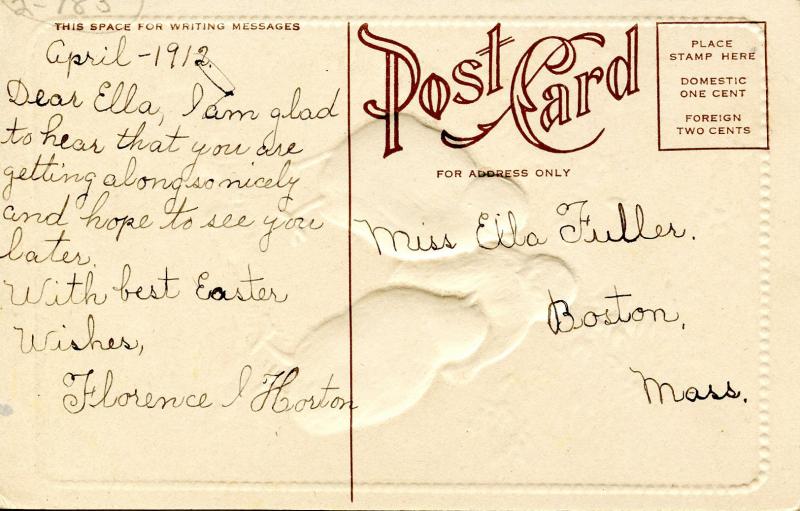 THIS SPACE FOR WRITING MESSAGES
April - 1912.
Dear Ella, I am glad
to hear that you are
getting along so nicely
and hope to see you
later.
With best Easter
Wishes,
Florence I Horton
Post Card
PLACE
STAMP HERE
DOMESTIC
ONE CENT
FOREIGN
TWO CENTS
FOR ADDRESS ONLY
Miss Ella Fuller.
Boston,
Mass.